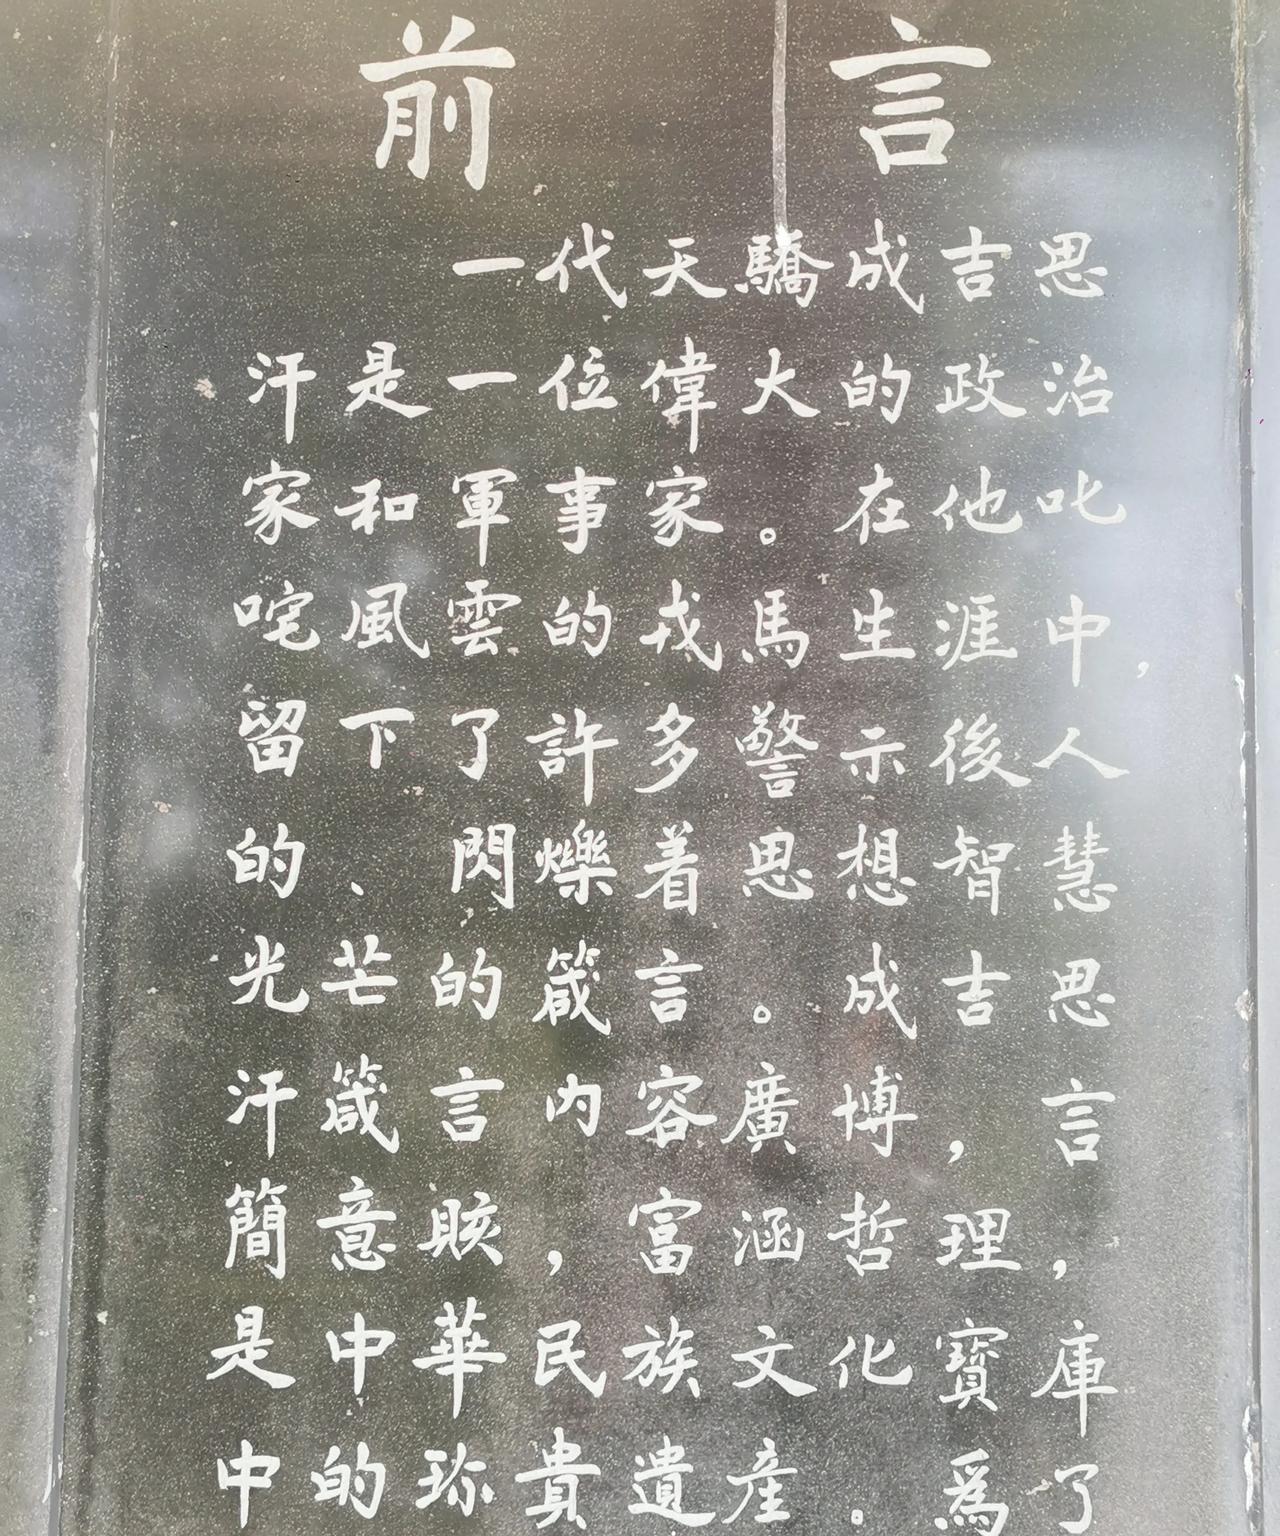 前言
一代天驕成吉思
汗是一位偉大的政治
家和軍事家。在他叱
咤風雲的戎馬生涯中，
留下了許多警示後人
的、閃爍着思想智慧
光芒的箴言。成吉思
汗箴言内容廣博，言
簡意賅，富涵哲理，
是中華民族文化寶庫
中的珎貴遺産。爲了